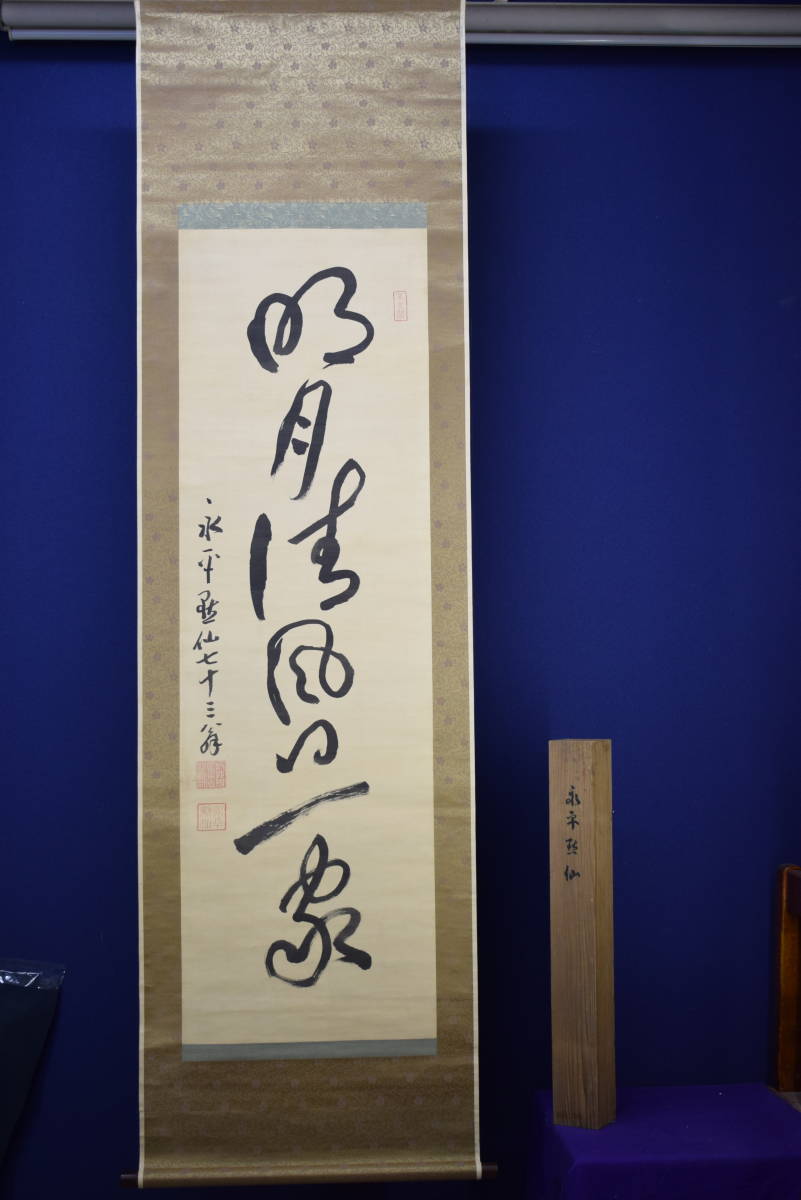 明月清風日一家
永平黙仙七十三翁
永平黙仙